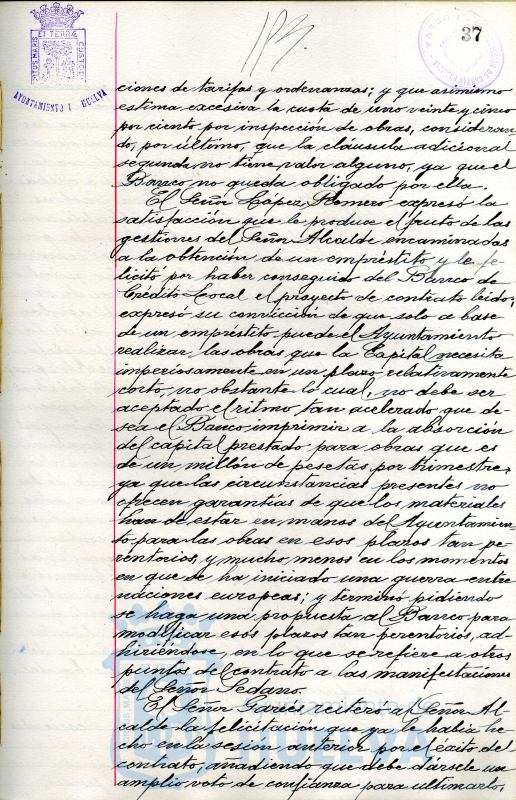 37
PORTUS MARIS ET TERRÆ CUSTODIA
AYUNTAMIENTO HUELVA
ciones de tarifas y ordenanzas; y que asimismo
estima excesiva la cuota de uno veinte y cinco
por ciento por inspección de obras, consideran-
do, por último, que la cláusula adicional
segunda no tiene valor alguno, ya que el
Banco no queda obligado por ella.
El Señor López Romero expresó la
satisfacción que le produce el fruto de las
gestiones del Señor Alcalde encaminadas
a la obtención de un empréstito, y le fe-
licitó por haber conseguido del Banco de
Crédito Local el proyecto de contrato leido;
expresó su convicción de que solo a base
de un empréstito puede el Ayuntamiento
realizar las obras que la Capital necesita
imperiosamente en un plazo relativamente
corto, no obstante lo cual, no debe ser
aceptado el ritmo tan acelerado que de-
sea el Banco imprimir a la absorción
del capital prestado para obras que es
de un millón de pesetas por trimestre,
ya que las circunstancias presentes no
ofrecen garantías de que los materiales
han de estar en manos del Ayuntamien-
to para las obras en esos plazos tan pe-
rentorios, y mucho menos en los momentos
en que se ha iniciado una guerra entre
naciones europeas; y terminó pidiendo
se haga una propuesta al Banco para
modificar esos plazos tan perentorios, ad-
hiriéndose, en lo que se refiere a otros
puntos del contrato a las manifestaciones
del Señor Sedano.
El Señor Garcés reiteró al Señor Al-
calde la felicitación que ya le había he-
cho en la sesión anterior por el éxito del
contrato, añadiendo que debe dársele un
amplio voto de confianza para ultimarlo,
HUELVA